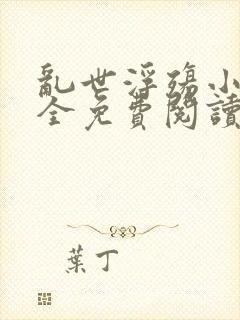 亂世浮殤小
全免費閱讀
葉丁